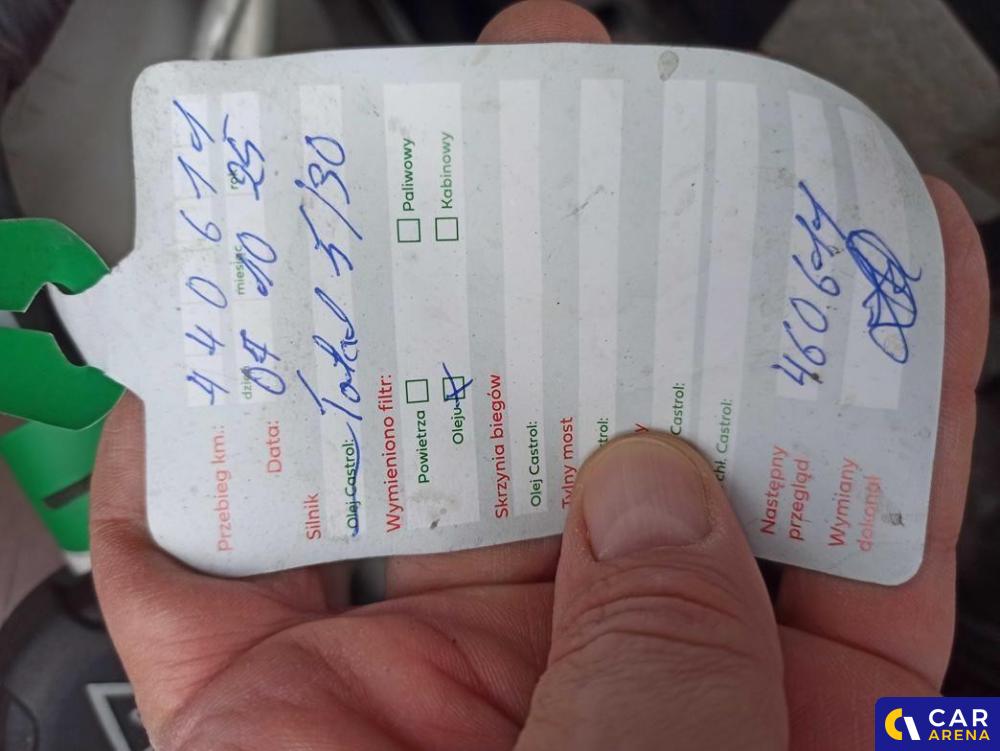 Przebieg km.: 440611
dzień miesiąc rok
Data: 07 10 25
Silnik
Olej Castrol: Total 5/30
Wymieniono filtr:
Powietrza Paliwowy
Oleju Kabinowy
Skrzynia biegów
Olej Castrol:
Tylny most
Castrol:
Następny przegląd 460611
Wymiany dokonał
CAR
ARENA